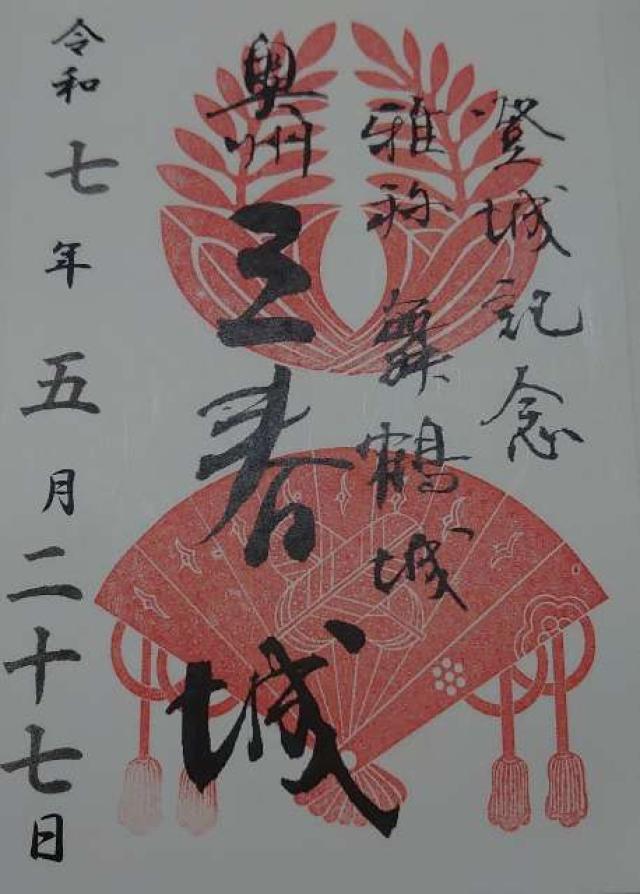 登城記念
雅称 舞鶴城
奥州 三春城
令和七年五月二十七日